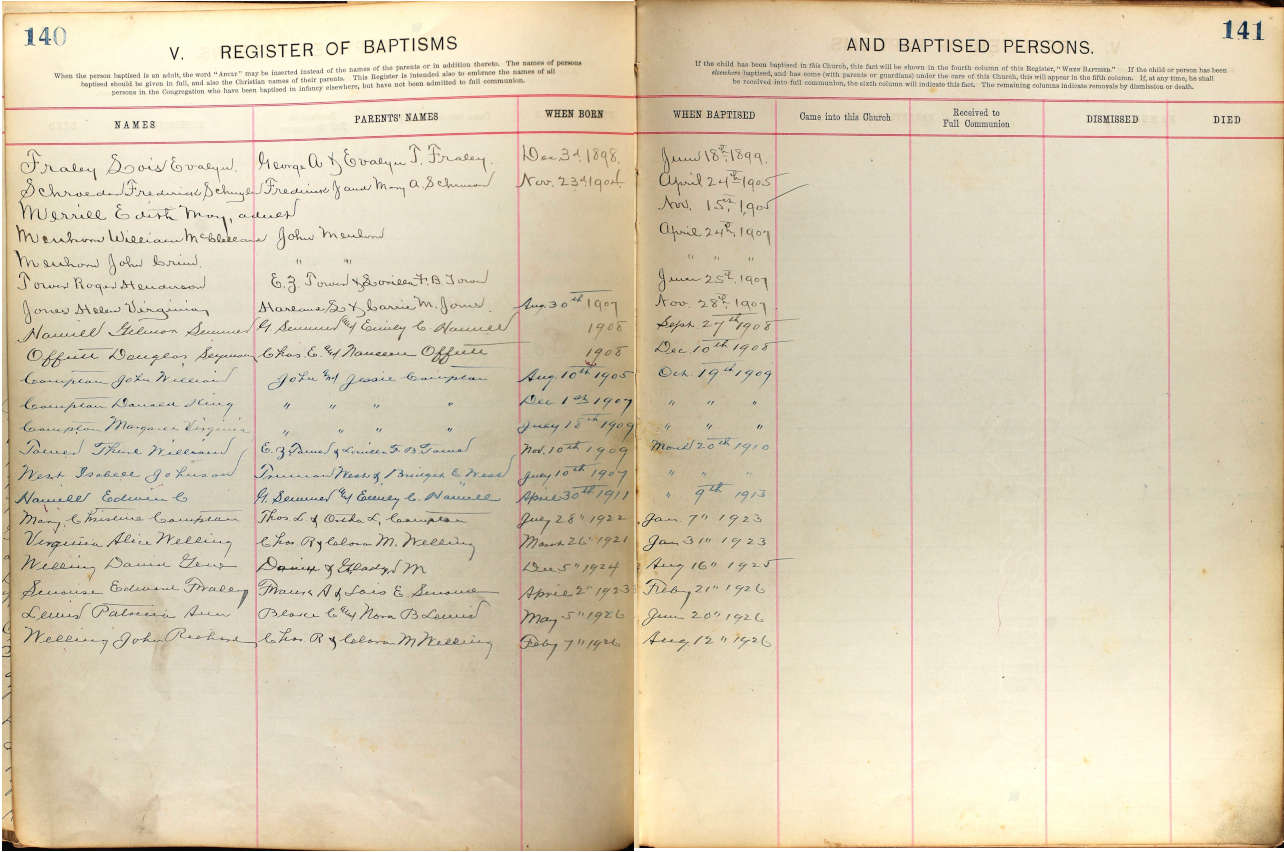 140
V. REGISTER OF BAPTISMS
When the person baptised is an adult, the word "ADULT" may be inserted instead of the names of the parents or in addition thereto. The names of persons
baptised should be given in full, and also the Christian names of their parents. This Register is intended also to embrace the names of all
persons in the Congregation who have been baptised in infancy elsewhere, but have not been admitted to full communion.
141
AND BAPTISED PERSONS.
If the child has been baptised in this Church, this fact will be shown in the fourth column of this Register, "WHEN BAPTISED." If the child or person has been
elsewhere baptised, and has come (with parents or guardians) under the care of this Church, this will appear in the fifth column. If, at any time, he shall
be received into full communion, the sixth column will indicate this fact. The remaining columns indicate removals by dismission or death.
NAMES PARENTS' NAMES WHEN BORN WHEN BAPTISED Came into this Church Received to Full Communion DISMISSED DIED
Fraley Lois Evalyn George A & Evalyn T. Fraley. Dec 3d, 1898. June 18th, 1899.
Schroeder Frederick Schuyler Frederick J and Mary A. Nov. 23d 1904 April 24th 1905
Merrill Edith May, adult Nov. 15th, 1905
William McClelland John April 24th, 1907
John " " " " "
Tower Roger Henderson E. Z. Tower & F. B. Tower June 25th, 1907
Jones Helen Virginia & Carrie M. Jones Aug 30th 1907 Nov. 28th, 1907
Hamill Gilmor Summer G Summer and Emily C. Hamill 1908 Sept. 27th 1908
Offutt Douglas Seymour Chas E. and Offutt 1908 Dec. 10th 1908
Compton John William John and Jessie Compton Aug. 10th 1905 Oct. 19th 1909
Compton King " " " " Dec 1st 1907 " " "
Compton Margaret Virginia " " " " July 18th 1909 " " "
Tower William E. Z. Tower & F B Tower Nov. 10th 1909 March 20th 1910
West Isabell Johnson Truman West & Bridget E West July 10th 1907 " " "
Hamill Edwin C G Summer and Emily C. Hamill April 30th 1911 " 9th 1913
Mary Christine Compton Thos L & L. Compton July 28" 1922 Jan. 7" 1923
Virginia Alice Welling Chas R & Clara M. Welling March 26" 1921 Jan 31" 1923
Welling David & Gladys M Dec 5" 1924 Aug 16" 1925
Edward Fraley & Lois E April 2" 1923 Feby 21" 1926
Lewis Patricia Ann and Nora B Lewis May 5" 1926 June 20" 1926
Welling John Richard Chas R & Clara M Welling Feby 7" 1926 Aug 12" 1926